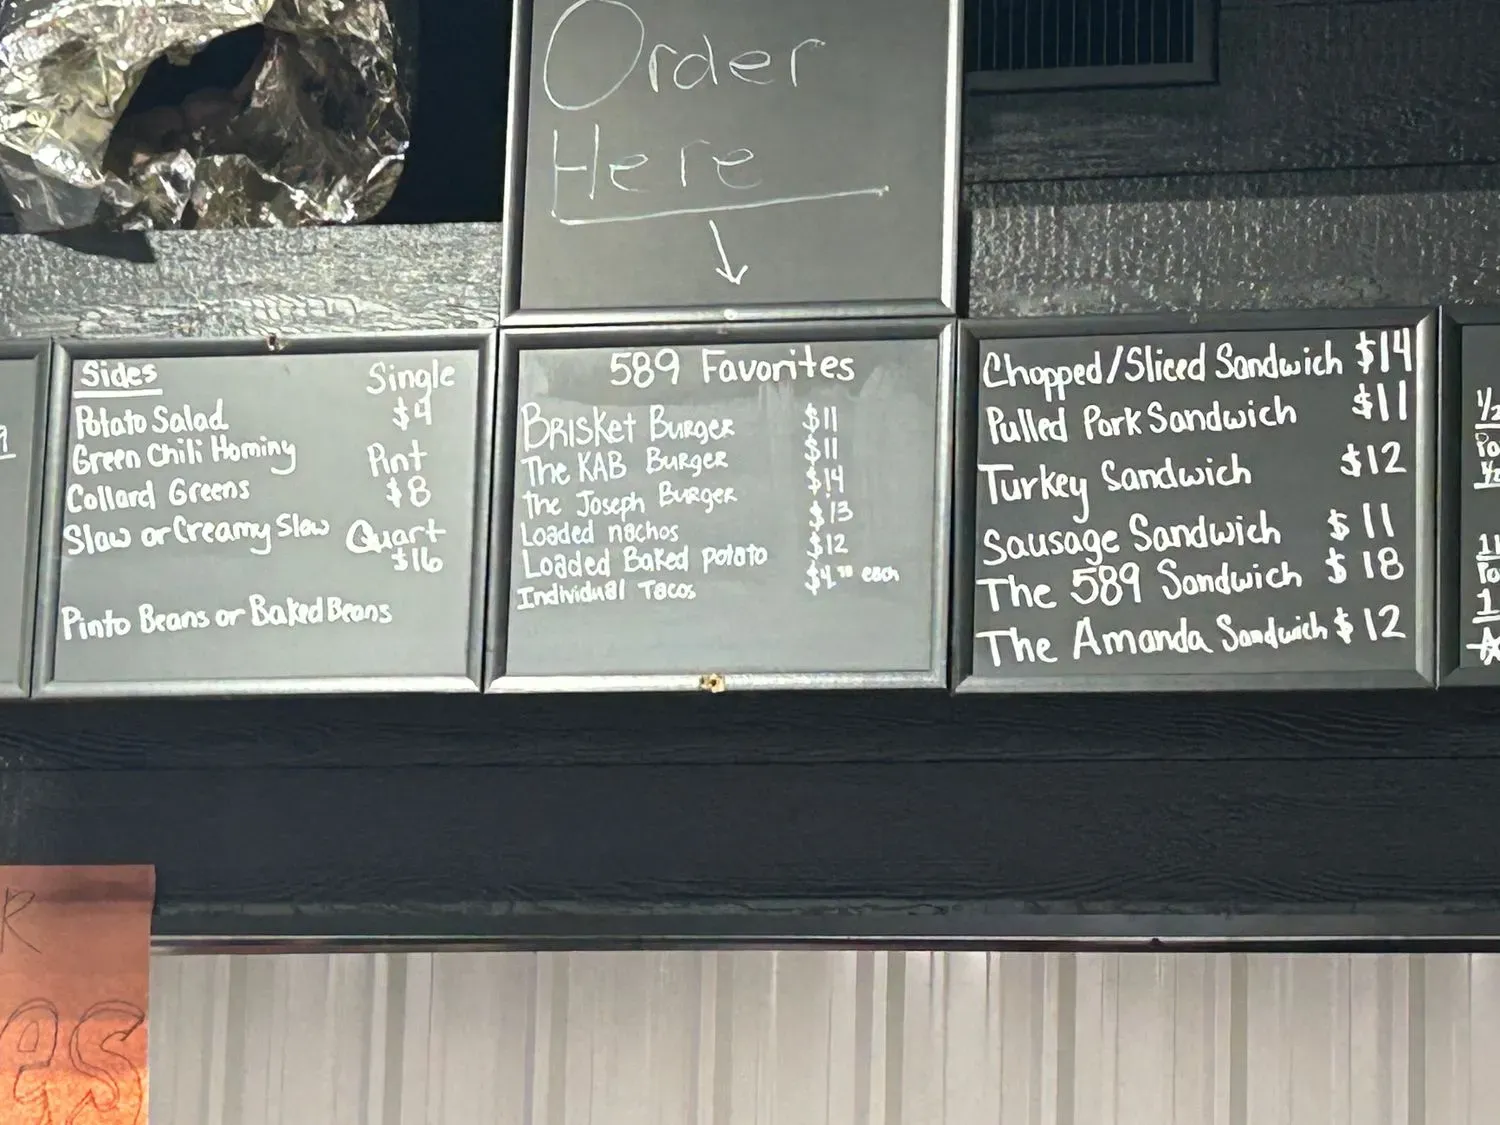 Order
Here
Sides Single
Potato Salad $4
Green Chili Hominy Pint
Collard Greens $8
Slaw or Creamy Slaw Quart
$16
Pinto Beans or Baked Beans
589 Favorites
Brisket Burger $11
The KAB Burger $11
The Joseph Burger $14
Loaded nachos $13
Loaded Baked Potato $12
Individual Tacos $4.⁵⁰ each
Chopped/Sliced Sandwich $14
Pulled Pork Sandwich $11
Turkey Sandwich $12
Sausage Sandwich $11
The 589 Sandwich $18
The Amanda Sandwich $12
1/2
1/2
R
es